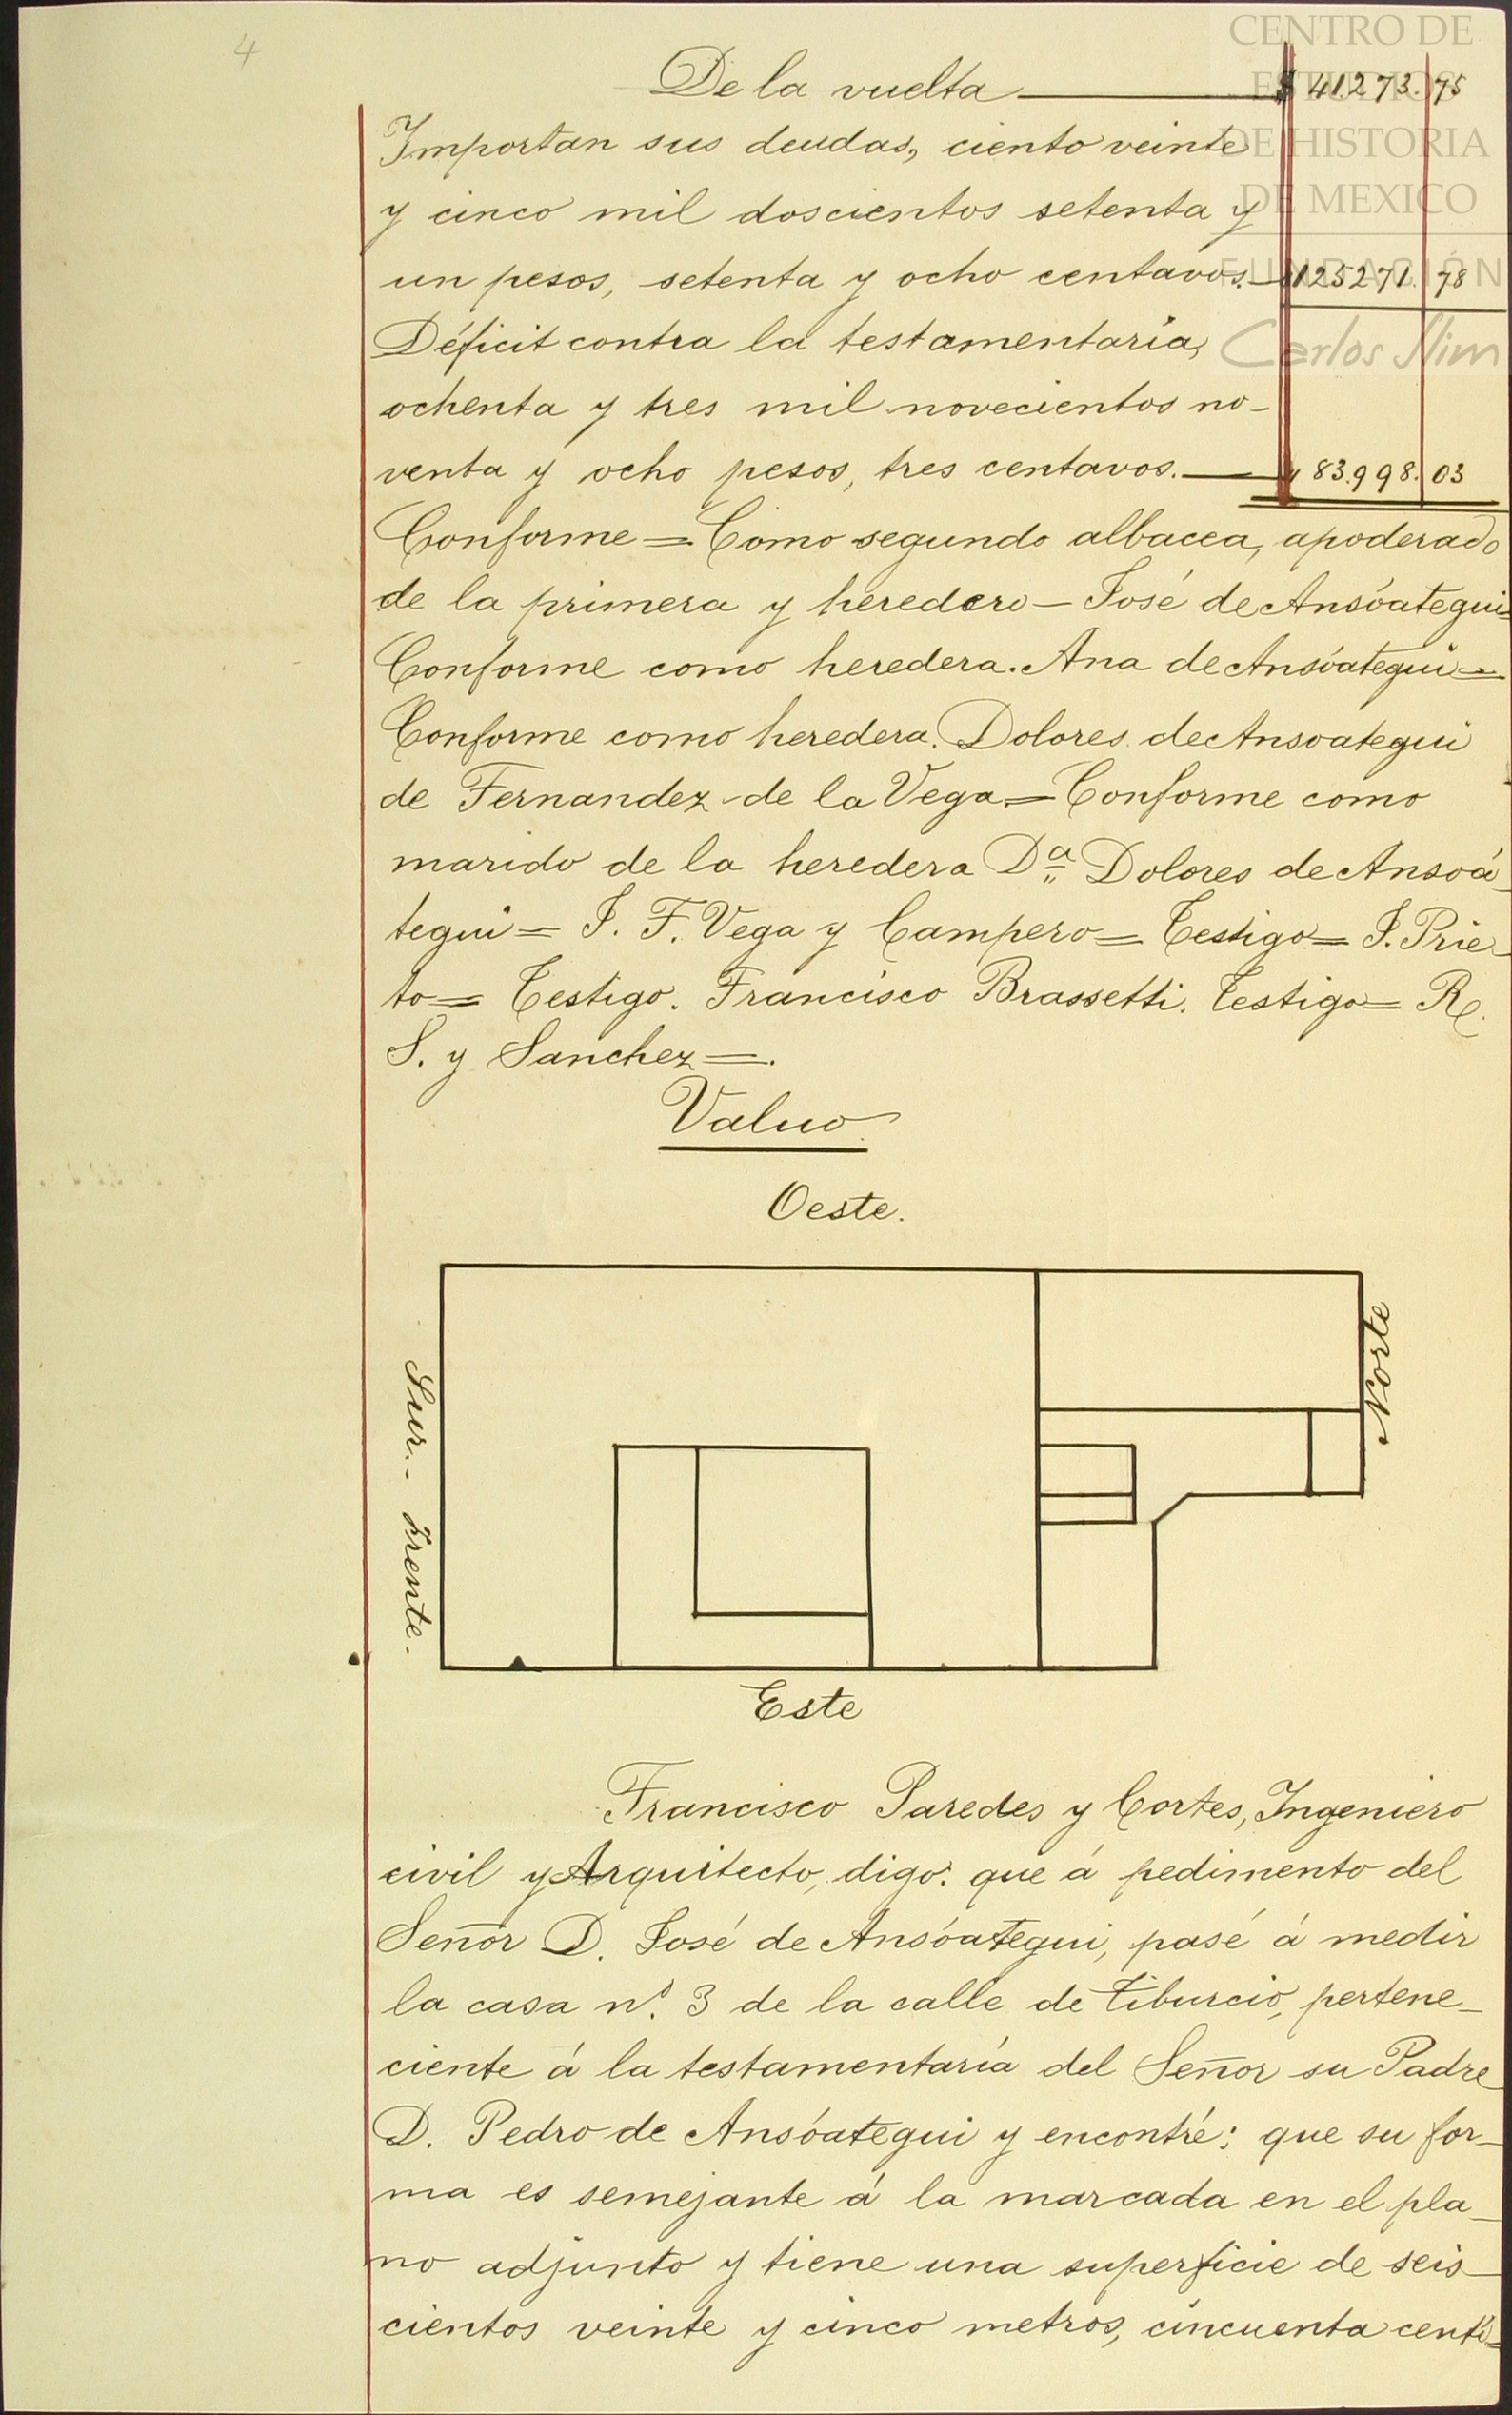 4
CENTRO DE
ESTUDIOS
DE HISTORIA
DE MEXICO
FUNDACIÓN
Carlos Slim
De la vuelta — $ 41.273. 75
Importan sus deudas, ciento veinte
y cinco mil doscientos setenta y
un pesos, setenta y ocho centavos. — 125271. 78
Déficit contra la testamentaría,
ochenta y tres mil novecientos no-
venta y ocho pesos, tres centavos. — $ 83.998. 03
Conforme = Como segundo albacea, apoderado
de la primera y heredero — José de Ansóategui =
Conforme como heredera. Ana de Ansóategui =
Conforme como heredera. Dolores de Ansoategui
de Fernandez de la Vega = Conforme como
marido de la heredera Dª Dolores de Ansoá-
tegui = J. F. Vega y Campero = Testigo = J. Prie-
to = Testigo. Francisco Brassetti. Testigo = R.
S. y Sanchez =.
Valuo
Oeste.
Norte
Sur. - Frente.
Este
Francisco Paredes y Cortes, Ingeniero
civil y Arquitecto, digo: que á pedimento del
Señor D. José de Ansóategui, pasé á medir
la casa nº. 3 de la calle de Tiburcio, pertene-
ciente á la testamentaría del Señor su Padre
D. Pedro de Ansóategui y encontré; que su for-
ma es semejante á la marcada en el pla-
no adjunto y tiene una superficie de seis-
cientos veinte y cinco metros, cincuenta centí-